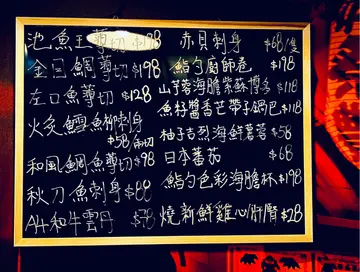 池魚王尊切 $98
金目鯛尊切 $198
左口魚尊切 $128
火炙鱈魚柳刺身
$58/兩切
和風鯛魚尊切 $98
秋刀魚刺身 $88
A4和牛雲丹 $78
赤貝刺身 $68/隻
鮨勺廚師卷 $198
山芋蓉海膽紫蘇博多 $118
魚籽醬香芒帶子鍋巴 $118
柚子吉烈海鮮薯蓉 $58
日本蕃茄 $68
鮨勺色彩海膽杯 $198
燒新鮮雞心/肝/腎 $28